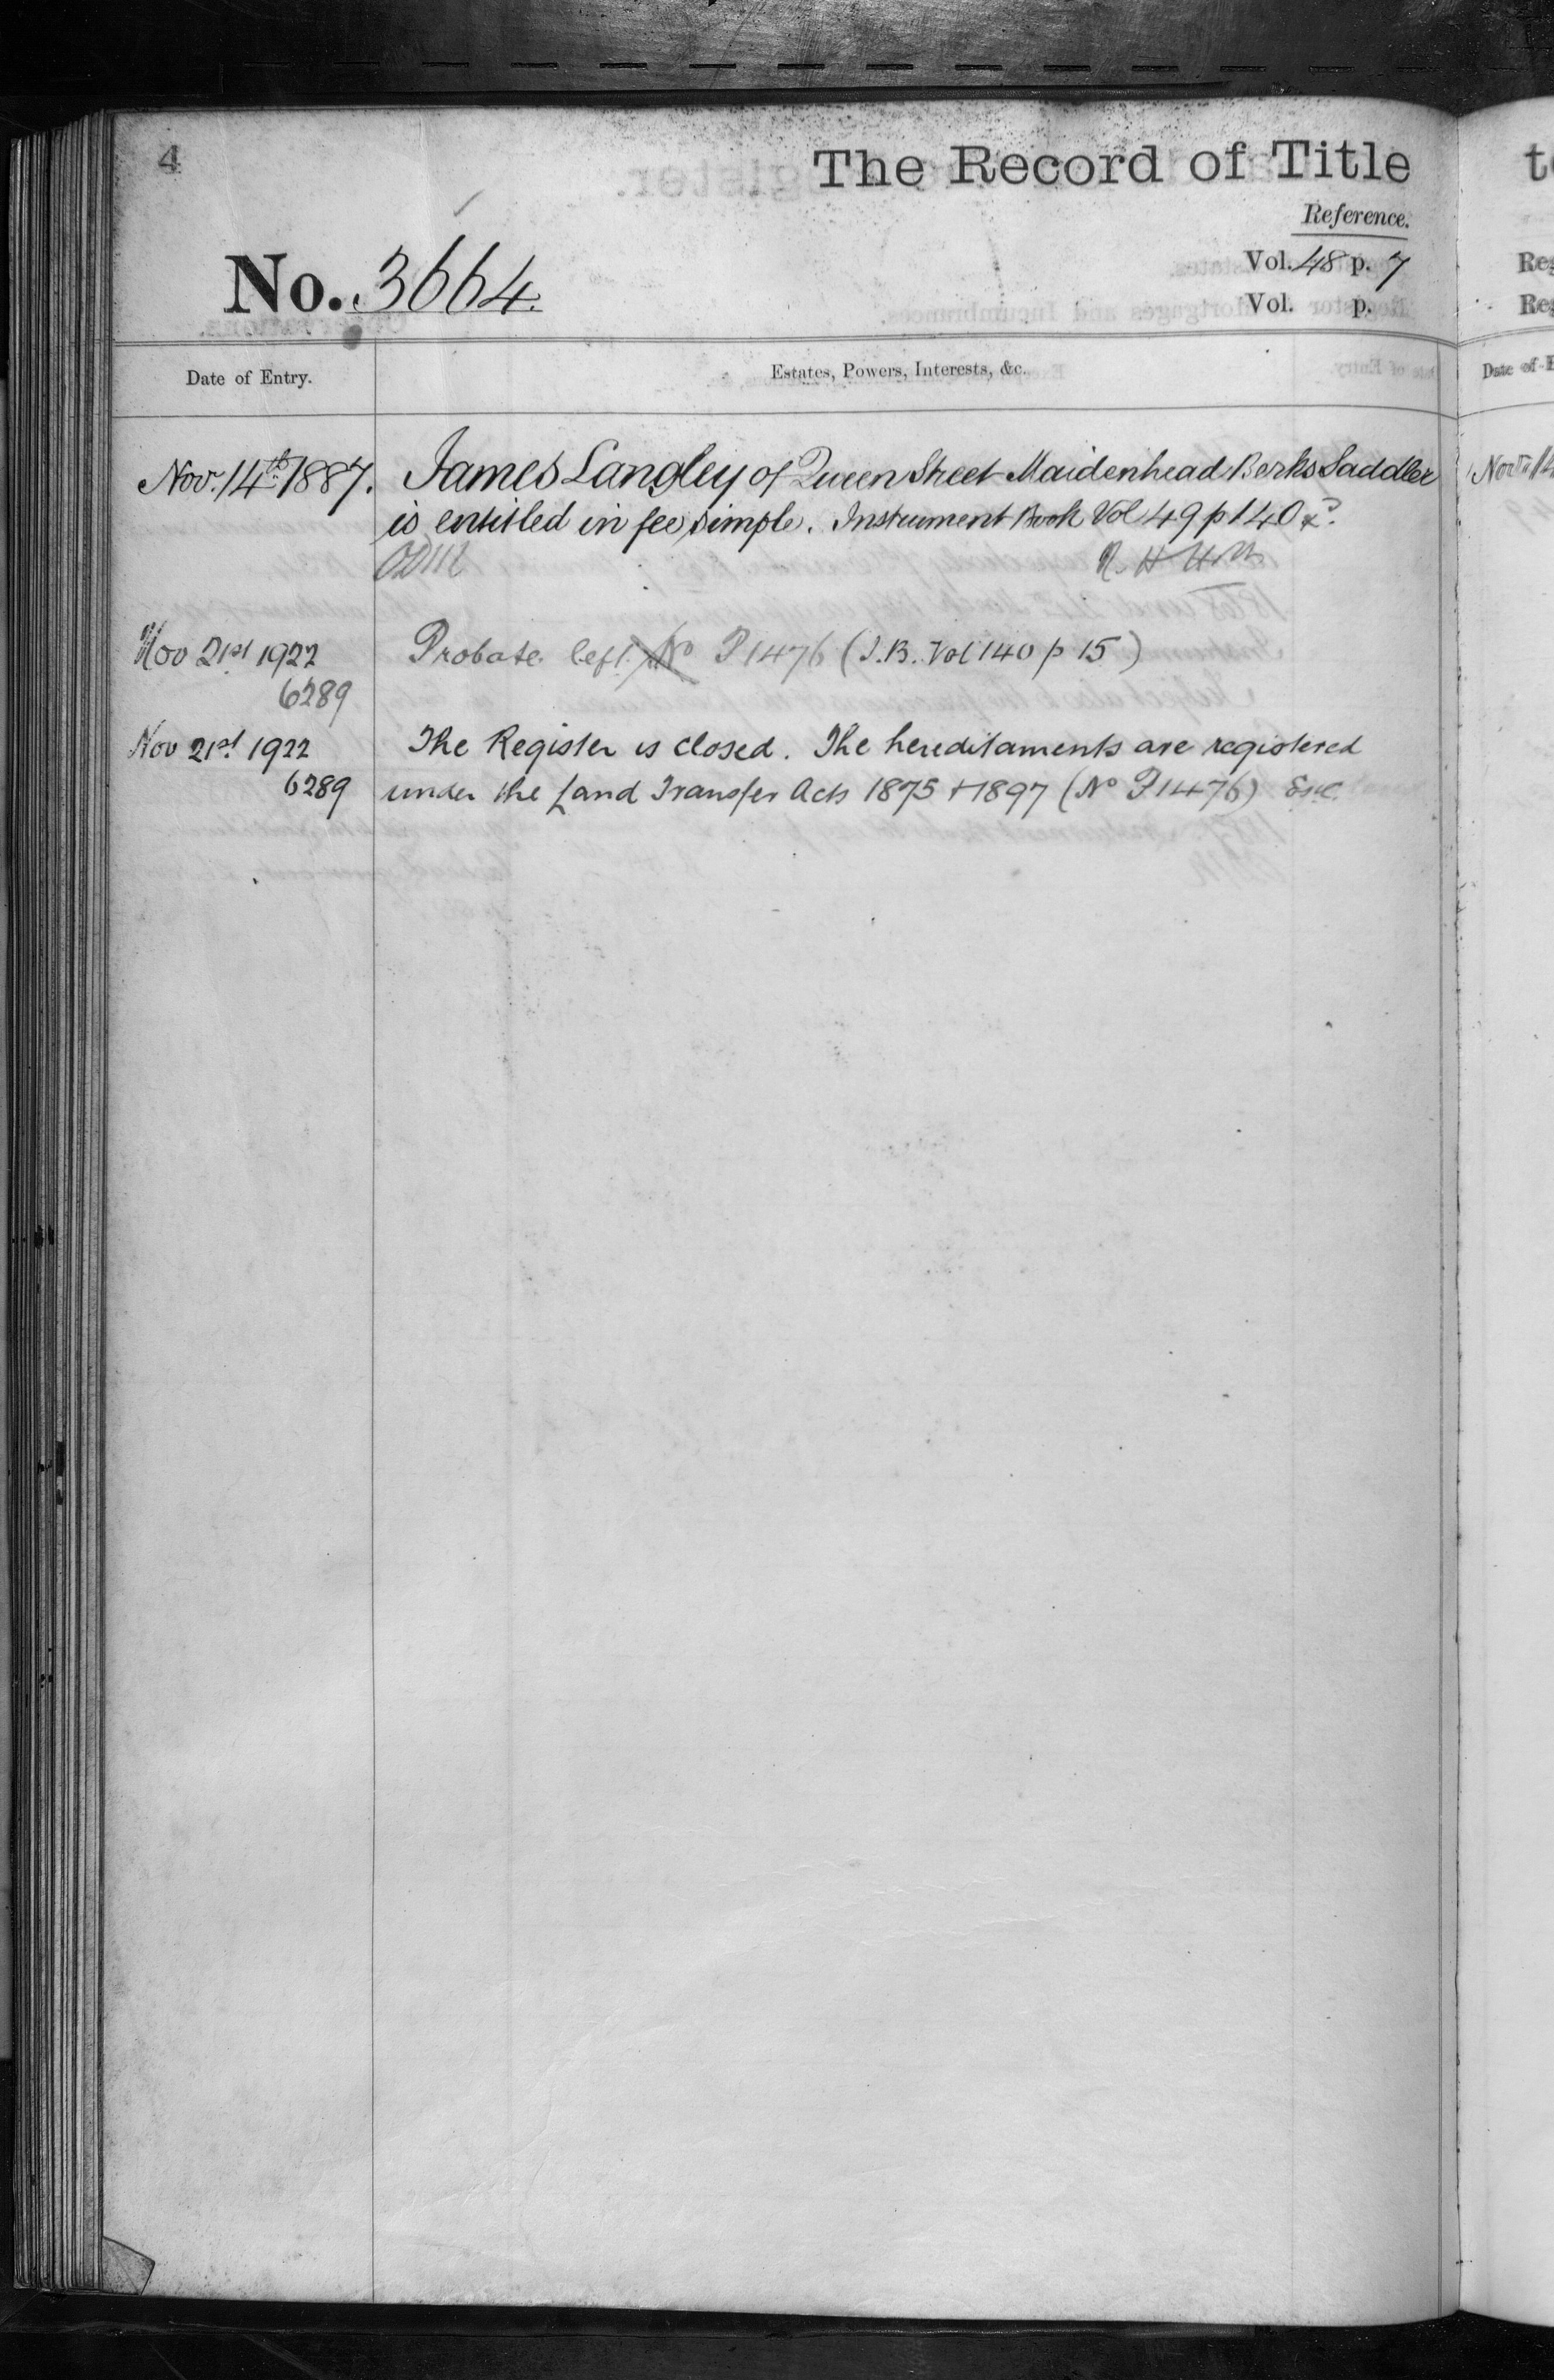 4
The Record of Title
Reference.
No. 3664.
Vol. 48 p. 7
Vol. p.
Date of Entry.
Estates, Powers, Interests, &c.
Nov. 14th 1887. James Langley of Queen Street Maidenhead Berks Saddler
is entitled in fee simple. Instrument Book Vol 49 p 140 &c.
Nov 21st 1922 Probate left No P1476 (I.B. Vol 140 p 15)
6289
Nov 21st 1922 The Register is closed. The hereditaments are registered
6289 under the Land Transfer Acts 1875 + 1897 (No P1476)
Date of